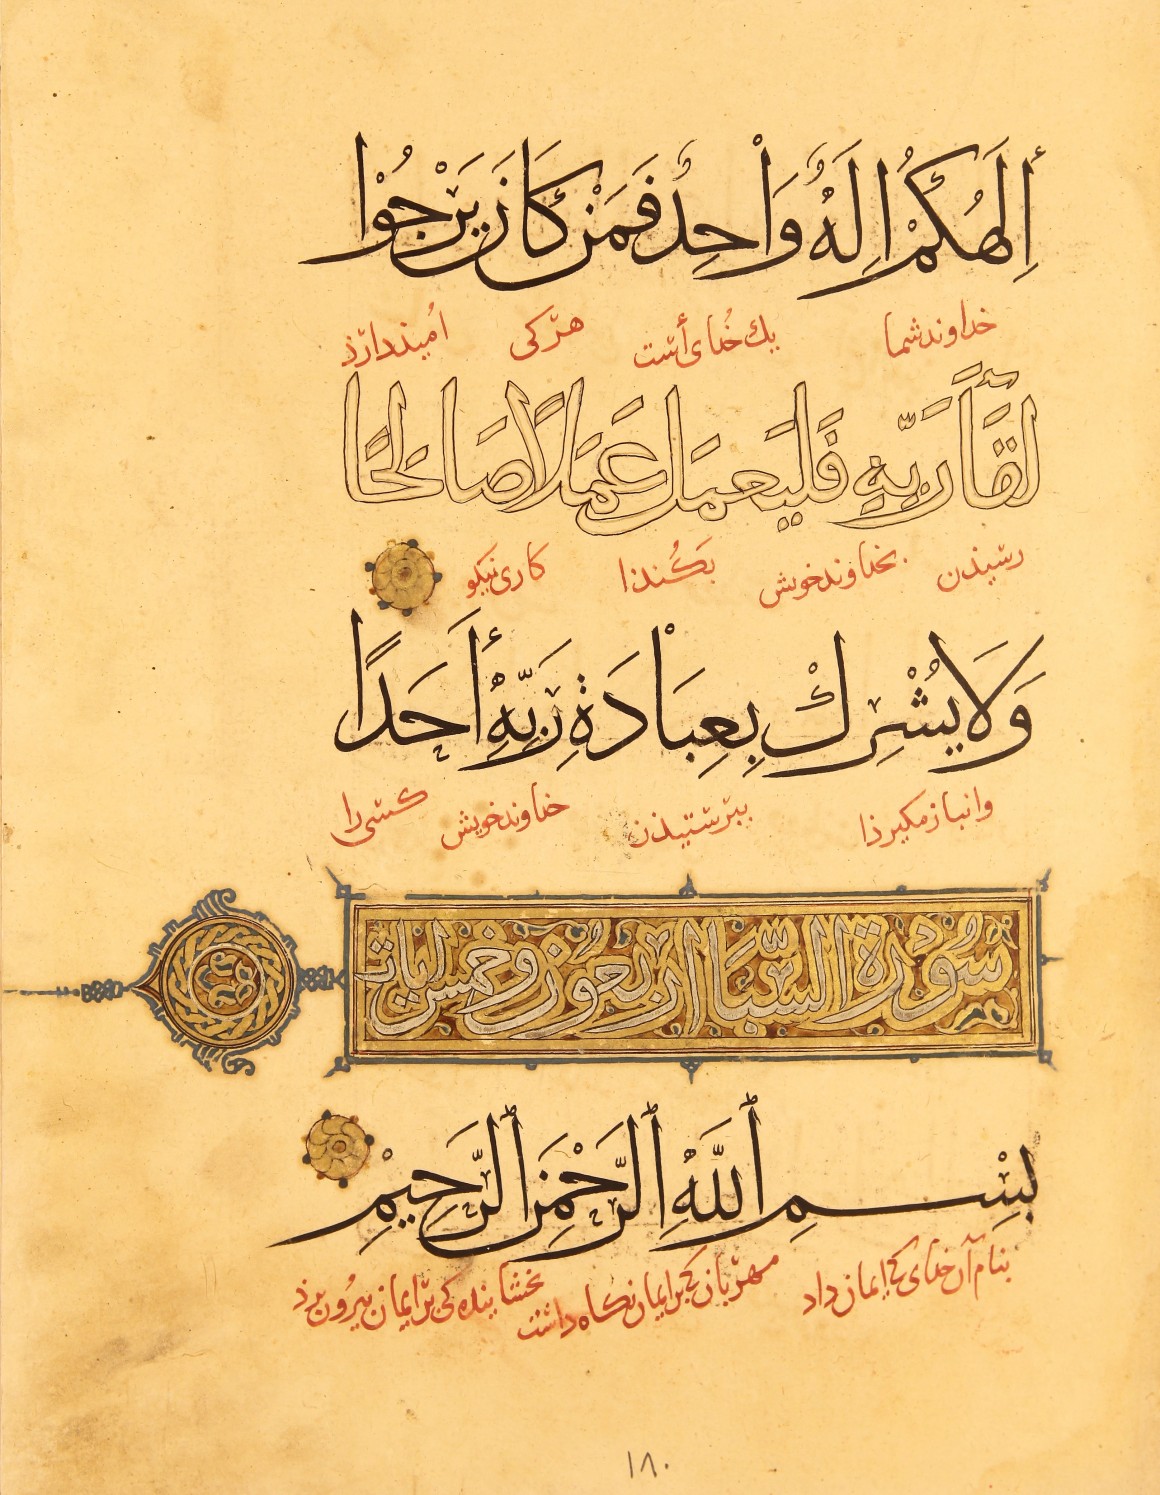 إِلَهُكُمْ إِلَهٌ وَاْحِدٌ فَمَنْ كَانَ يَرْجُوْا
خداوند شما يك خُدای أست هرکی اُميذ دارذ
لِقَآءَ رَبِّهِ فَلْيَعْمَلْ عَمَلاً صَالِحًا
رسيذن بخداوند خويش بکُنذا کاری نيکو
وَلَا يُشْرِكْ بِعِبَاْدَةِ رَبِّهِ أَحَدًا
وانباز مکيرذا بپرستيذن خداوند خويش کسی را
سُورَةُ السَّبَا اربعون وخمس ايات
بِسْمِ اللَّهِ الرَّحْمَنِ الرَّحِيْمِ
بنام آن خدای کی ايمان داد مهربان کی بر ايمان نکاه داشت بخشاينده کی بر ايمان بيرون برذ
١٨٠